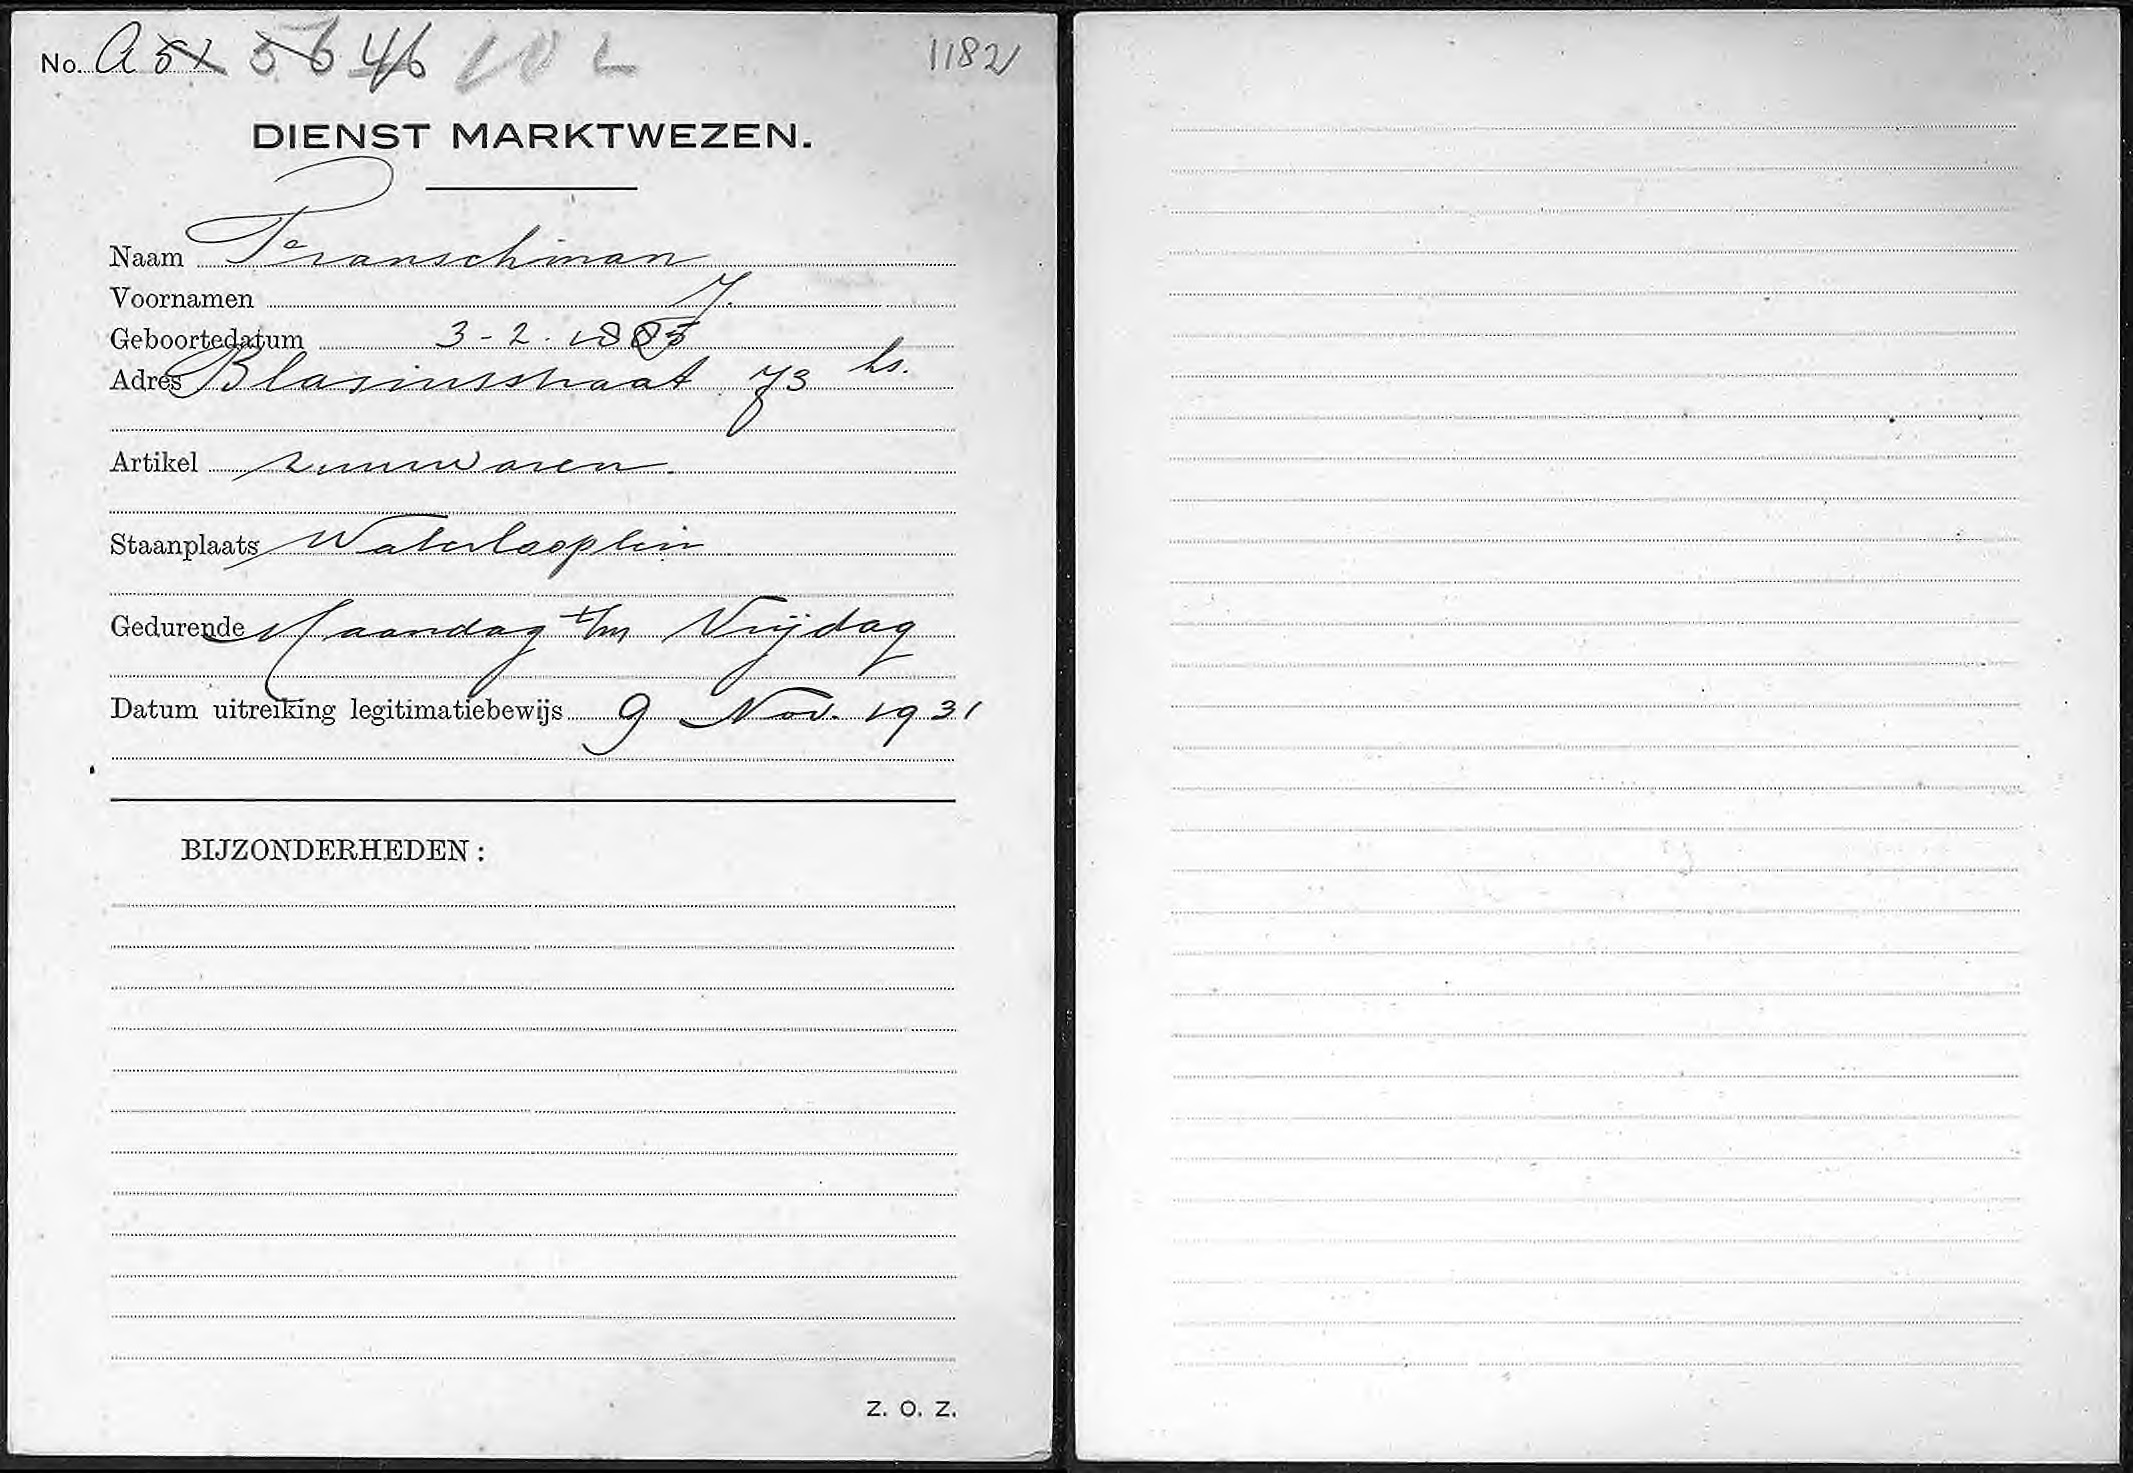 No. A 51 56 46 10 L 1182
DIENST MARKTWEZEN.
Naam Franschman
Voornamen J.
Geboortedatum 3-2.1885
Adres Blasiusstraat 73 hs.
Artikel zuurwaren.
Staanplaats Waterlooplein
Gedurende Maandag t/m Vrijdag
Datum uitreiking legitimatiebewijs 9 Nov. 1931
BIJZONDERHEDEN:
Z. O. Z.